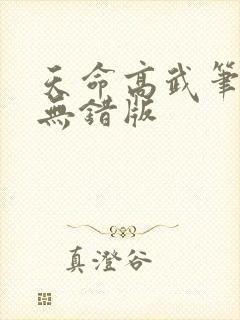 天命高武筆
無錯版
真澄谷